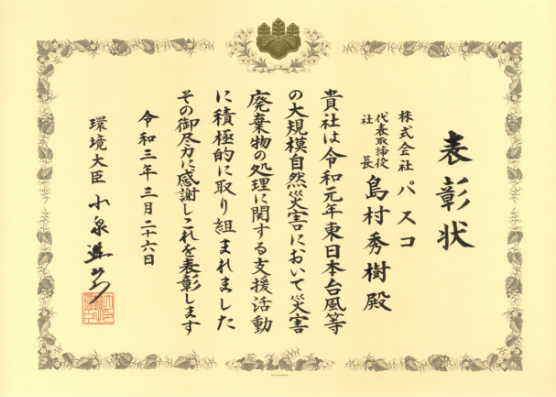 表彰状
株式会社 パスコ
代表取締役
社長 島村秀樹殿
貴社は令和元年東日本台風等
の大規模自然災害において災害
廃棄物の処理に関する支援活動
に積極的に取り組まれました
その御尽力に感謝しこれを表彰します
令和三年三月二十六日
環境大臣 小泉進次郎